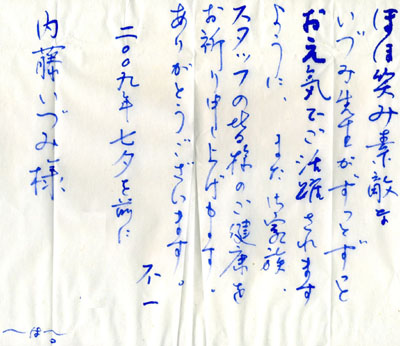 ほほ笑み素敵な
いづみ先生がずっとずっと
お元気でご活躍されます
ように、また御家族、
スタッフの皆様のご健康を
お祈り申し上げます。
ありがとうございます。
二〇〇九年七夕を前に
不一
内藤いづみ様